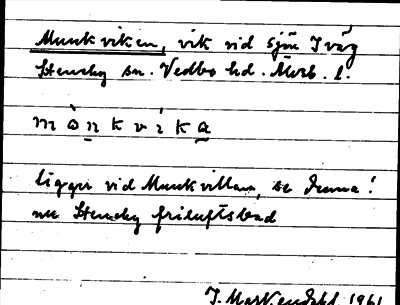 Munkviken, vik vid sjön Iväg
Stensby sn. Vedbo hd. Älvsb. l.
mònkvika
ligger vid Munkvillan, se denna!
nu Stensby friluftsbad
J. Markendahl 1961